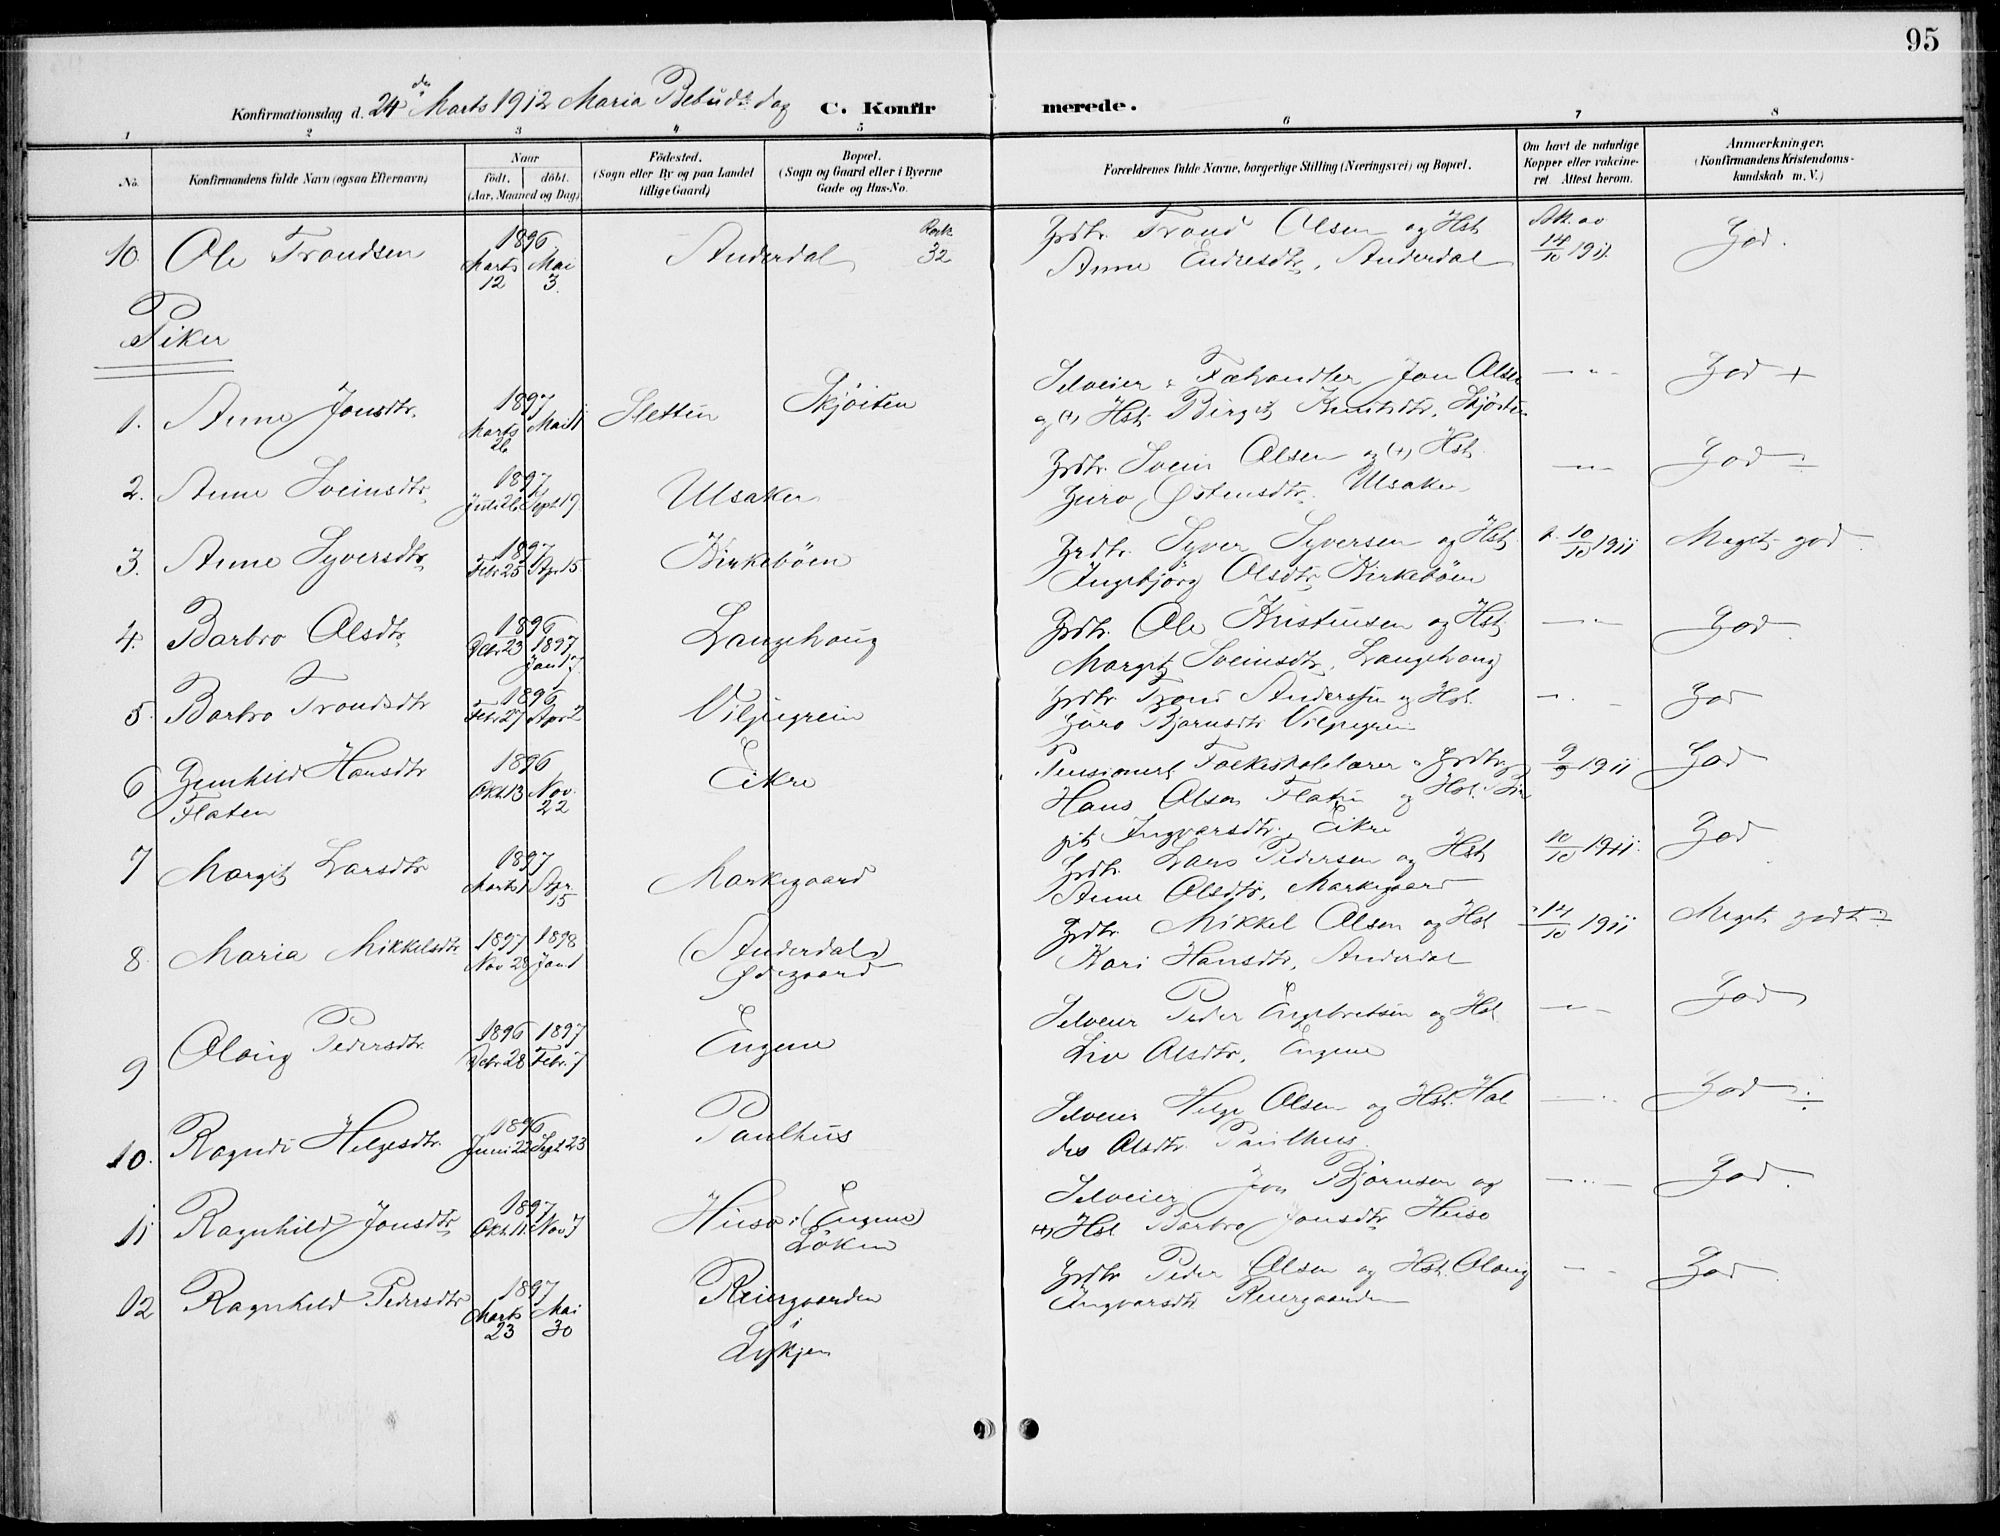 95
Konfirmationsdag d. 24de Marts 1912 Maria Bebud. dag C. Konfirmerede.
1 2 3 4 5 6 7 8
No. Konfirmandens fulde Navn (ogsaa Efternavn) Naar födt. döbt. (Aar, Maaned og Dag) Födested. (Sogn eller By og paa Landet tillige Gaard) Bopæl. (Sogn og Gaard eller i Byerne Gade og Hus-No. Forældrenes fulde Navne, borgerlige Stilling (Næringsvei) og Bopæl. Om havt de naturlige Kopper eller vakcineret Attest herom. Anmærkninger. (Konfirmandens Kristendomskundskab m. V.)
10. Ole Trondsen 1896 Marts 12 Mai 3. Anderdal 32 Grdbr. Trond Olsen og Hst. Att. av 14/10 1911. God.
Anne Endresdtr., Anderdal
Piker
1. Anne Jonsdtr. 1897 Marts 26 Mai 11 Sletten Skjöiten Selveier Fæhandler Jon Olsen — " — God +
og (+) Hst. Birgit Knutsdtr. Skjöiten
2. Anne Sveinsdtr. 1897 Juli 26 Sept 19. Ulsaker Grdbr. Svein Olsen og (+) Hst. — " — God ÷
Guro Östensdtr. Ulsaker
3. Anne Syversdtr. 1897 Febr 25 Apr 15 Birkeböen Grdbr. Syver Syversen og Hst. 10/10 1911 Meget god.
Ingebjörg Olsdtr. Birkeböen
4. Barbro Olsdtr. 1896 Debr 23 1897 Jan 17. Langehaug Grdbr. Ole Kristensen og Hst. — " — God.
Margit Sveinsdtr., Langehaug
5. Barbro Trondsdtr 1896 Febr 27 Apr 2 Viljugrein Grdbr. Trond Anderssen og Hst. — " — God
Guro Bjørnsdtr Viljugrein
6 Gunhild Hansdtr 1896 Okt 13 Nov. 22 Eikre Pensionert Folkeskolelærer Grdbr. 9/9 1911 God
Flaten Hans Olsen Flaten og Hst. Bir
git Ingvarsdtr., Eikre
7 Margit Larsdtr 1897 Marts 1 Apr. 15 Markegaard Grdbr. Lars Pedersen og Hst. 10/10 1911. God
Anne Olsdtr., Markegaard
8. Maria Mikkelsdtr. 1897 Nov 28 1898 Jan 1 (Anderdal) Grdbr. Mikkel Olsen og Hst 14/10 1911 Meget godt ÷
Ødegaard Kari Hansdtr., Anderdal
9 Olaug Pedersdtr. 1896 Debr 28 1897 Febr. 7 Engene Selveier Peder Engebretsen og Hst. — " — God
Liv Olsdtr., Engene
10. Ragndi Helgesdtr. 1896 Juni 22 Sept 23 Paulhus Selveier Helge Olsen og Hst. Hal — " — God ÷
dis Olsdtr. Paulhus.
11 Ragnhild Jonsdtr. 1897 Okt. 11. Nov 7 Huso (Engene) Selveier Jon Björnsen og — " — God.
Löken (+) Hst Barbro Jonsdtr. Huso
12 Ragnhild Pedersdtr 1897 Marts 23 Mai 30 Reiergaarden Grdbr Peder Olsen og Hst. Olaug — " — God
Ingvarsdtr. Reiergaarden
Lykjen